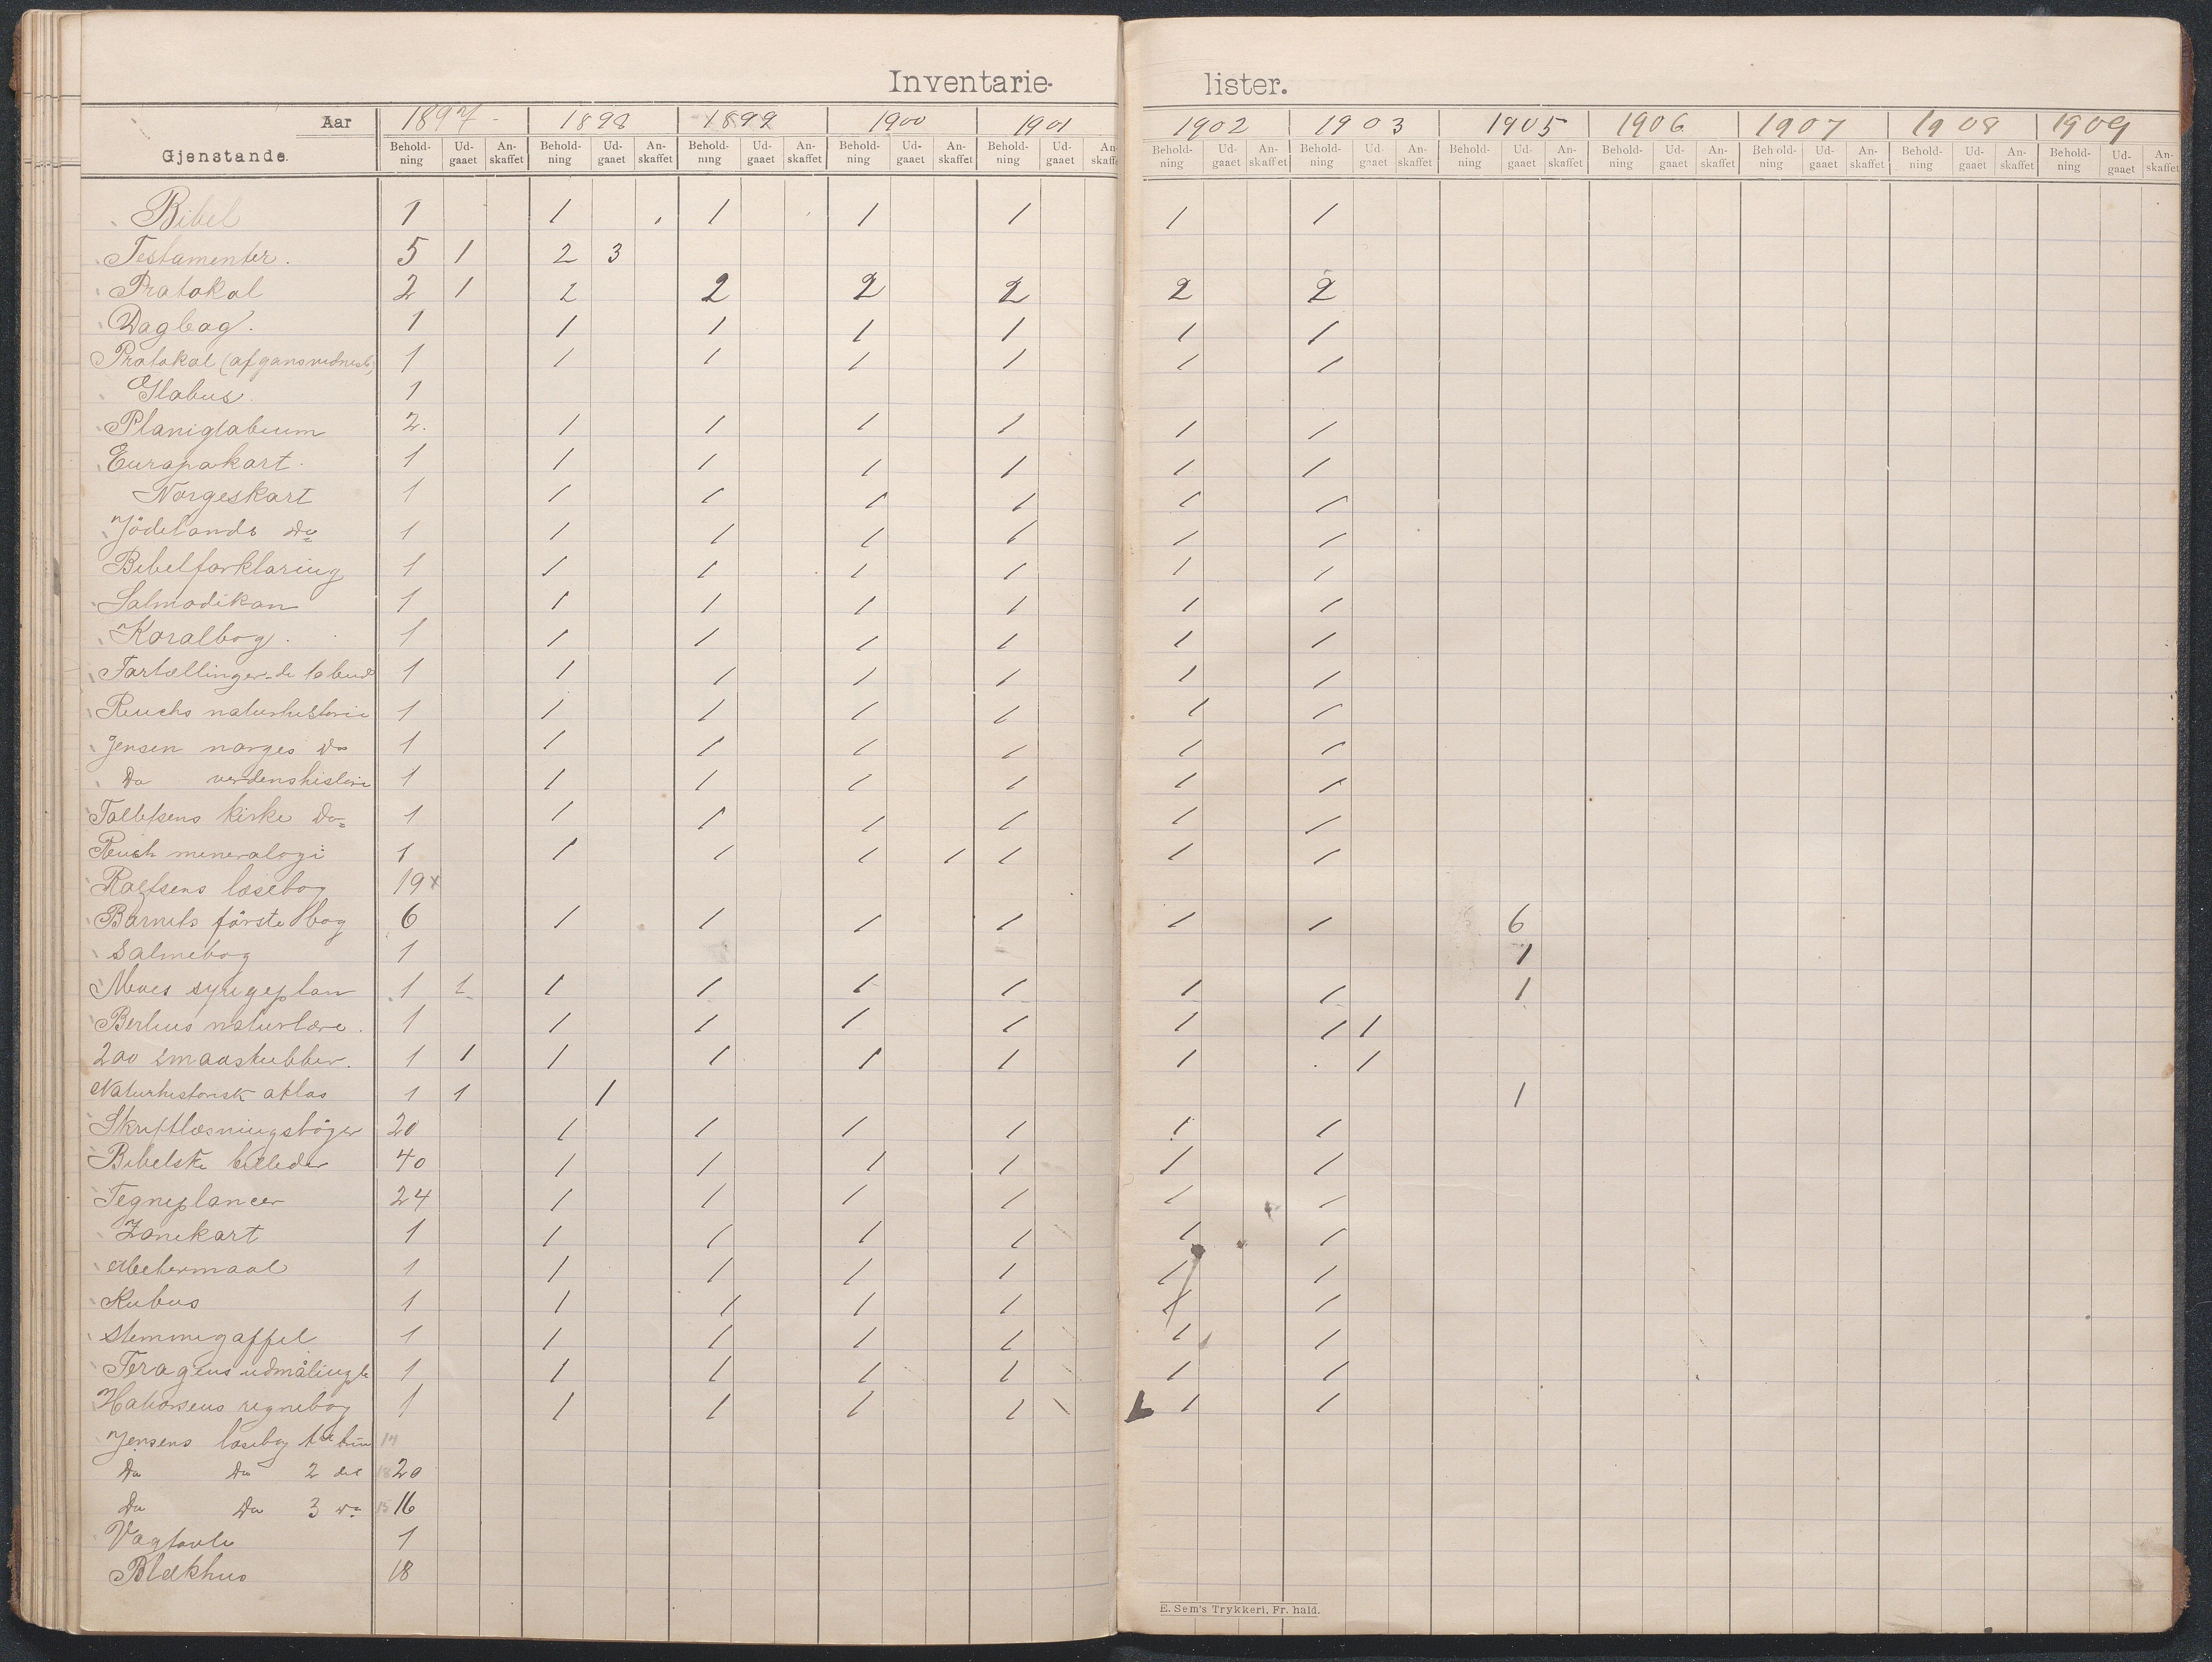 Inventarie- lister.
Aar 1897 1898 1899 1900 1901 1902 1903 1905 1906 1907 1908 1909
Gjenstande. Behold-ning Ud-gaaet An-skaffet Behold-ning Ud-gaaet An-skaffet Behold-ning Ud-gaaet An-skaffet Behold-ning Ud-gaaet An-skaffet Behold-ning Ud-gaaet An-skaffe Behold-ning Ud-gaaet An-skaffet Behold-ning Ud-gaaet An-skaffet Behold-ning Ud-gaaet An-skaffet Behold-ning Ud-gaaet An-skaffet Behold-ning Ud-gaaet An-skaffet Behold-ning Ud-gaaet An-skaffet Behold-ning Ud-gaaet An-skaffet
Bibel 1 1 1 1 1 1 1
Testamenter. 5 1 2 3
Protokol 2 1 2 2 2 2 2 2
Dagbog. 1 1 1 1 1 1 1
Protokol (afgansvidnesb) 1 1 1 1 1 1 1
Globus 1
Planiglobium 2. 1 1 1 1 1 1
Europakart. 1 1 1 1 1 1 1
Norgeskart 1 1 1 1 1 1 1
Jödelands do 1 1 1 1 1 1 1
Bibelforklaring 1 1 1 1 1 1 1
Salmodikon 1 1 1 1 1 1 1
Koralbog. 1 1 1 1 1 1 1
Fortællinger de 10 bud 1 1 1 1 1 1 1
Reuchs naturhistorie 1 1 1 1 1 1 1
Jensen norges do 1 1 1 1 1 1 1
Do verdenshistorie 1 1 1 1 1 1 1
Tollefsens kirke do 1 1 1 1 1 1 1
Reush mineralogi 1 1 1 1 1 1 1 1
Rolfsens læsebog 19 x
Barnets förste bog 6 1 1 1 1 1 1 6
Salmebog 1 1
syngeplan 1 1 1 1 1 1 1 1 1
naturlære. 1 1 1 1 1 1 1 1
200 smaastubber. 1 1 1 1 1 1 1 1
Naturhistorisk atlas 1 1 1 1
Skriftlæsningsböger 20 1 1 1 1 1 1
Bibelske billeder 40 1 1 1 1 1 1
Tegneplancer 24 1 1 1 1 1 1
Zonekart 1 1 1 1 1 1 1
Metermaal 1 1 1 1 1 1 1
Kubus 1 1 1 1 1 1 1
Stemmegaffel 1 1 1 1 1 1 1
1 1 1 1 1 1 1
regnebog 1 1 1 1 1 1 1
Jensens læsebog 14
Do Do 2 del 18 20
Do Do 3 do 15 16
Vægtavle 1
Blækhus 18
E. Sem's Trykkeri, Fr. hald.